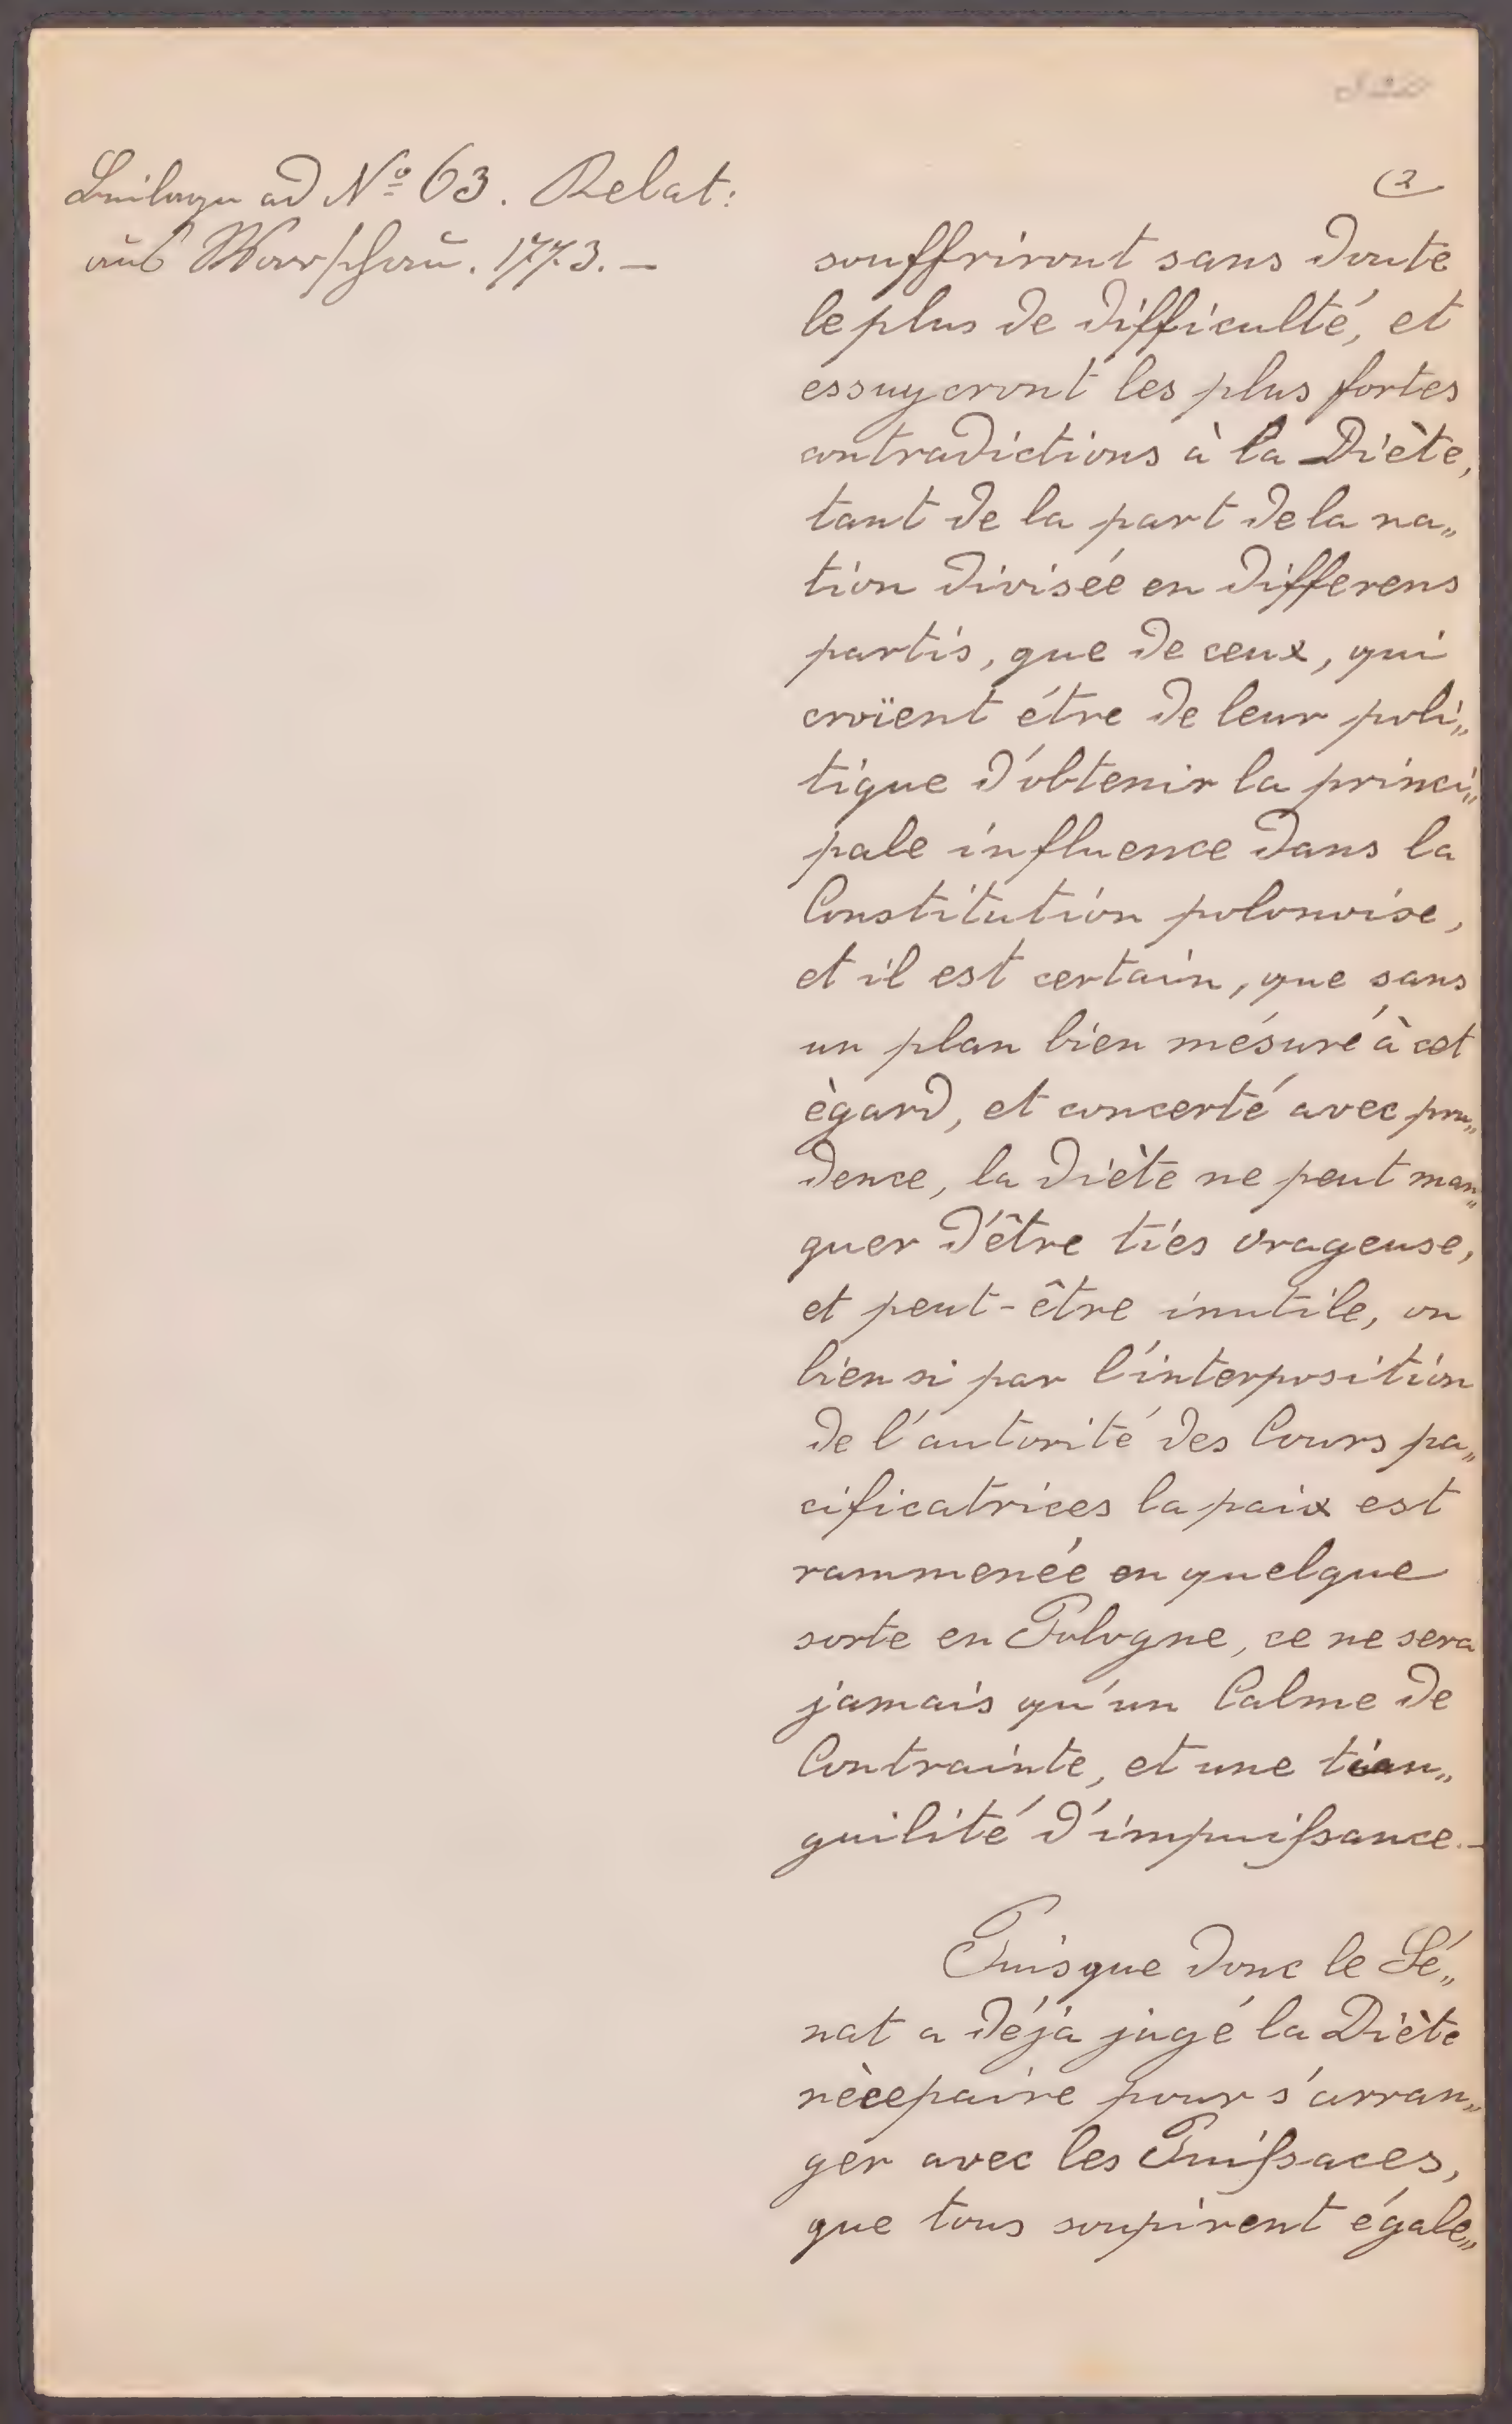 Beilage ad Nº 63. Relat:
aus Warschau. 1773. –
(2
souffriront sans doute
le plus de difficulté, et
essuyeront les plus fortes
contradictions à la Diète,
tant de la part de la na„
tion divisée en differens
partis, que de ceux, qui
croïent étre de leur poli„
tique d'obtenir la princi„
pale influence dans la
Constitution polonoise,
et il est certain, que sans
un plan bien mésuré à cet
ègard, et concerté avec pru„
dence, la diète ne peut man„
quer d'être très orageuse,
et peut-être inutile, ou
bien si par l'interposition
de l'autorité des Cours pa„
cificatrices la paix est
rammenée en quelque
sorte en Pologne, ce ne sera
jamais qu'un Calme de
Contrainte, et une tran„
quilité d'impuissance. –
Puisque donc le Sé„
nat a déjà jugé la Diète
nècessaire pour s'arran„
ger avec les Puissaces,
que tous soupirent égale„